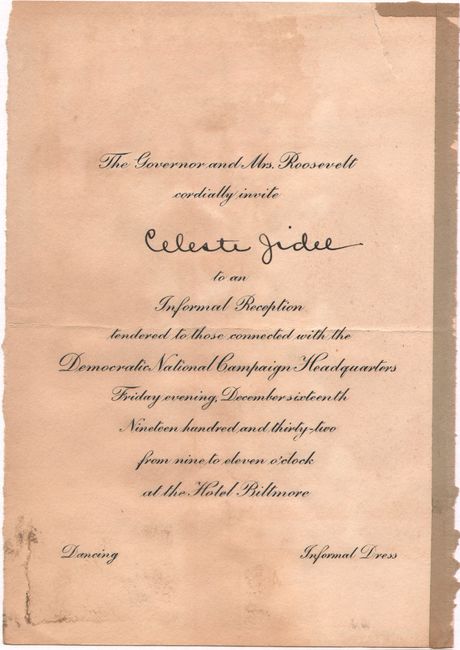 The Governor and Mrs. Roosevelt
cordially invite
Celeste Jidee
to an
Informal Reception
tendered to those connected with the
Democratic National Campaign Headquarters
Friday evening, December sixteenth
Nineteen hundred and thirty-two
from nine to eleven o'clock
at the Hotel Biltmore
Dancing
Informal Dress